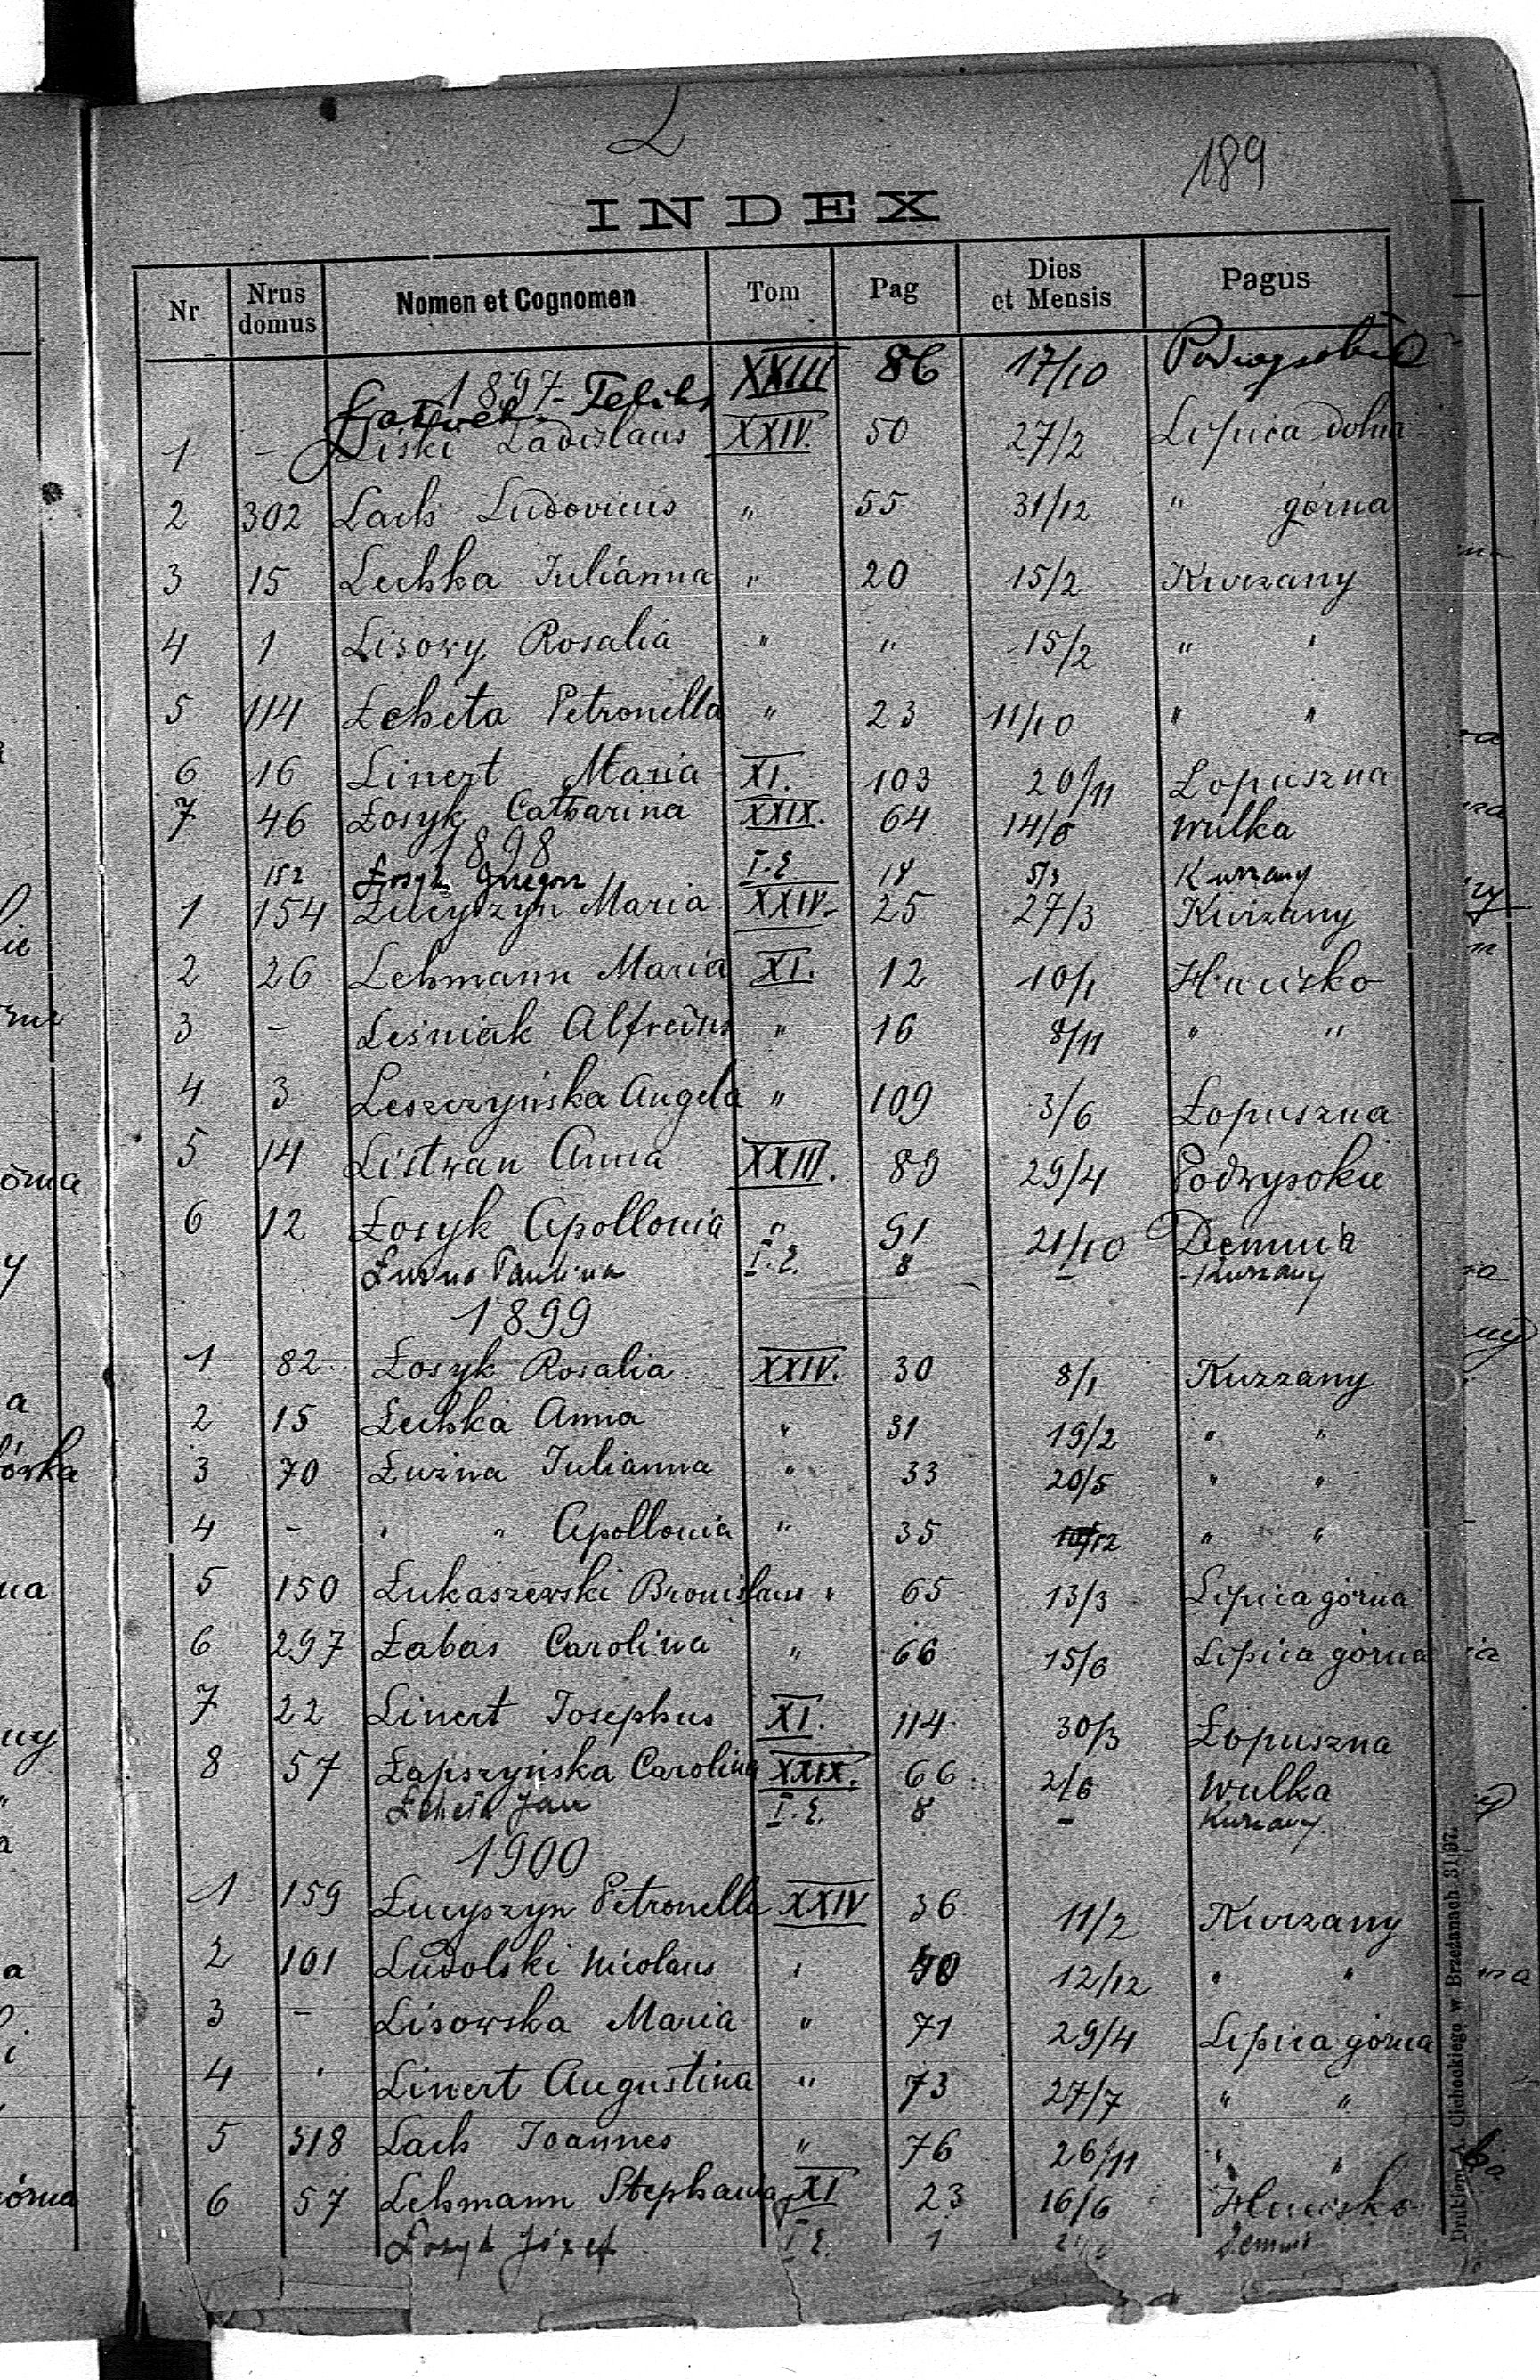 L
189
INDEX
Nr Nrus domus Nomen et Cognomen Tom Pag Dies et Mensis Pagus
1897 Felik XXIII 86 17/10
1 - Liski Ladislaus XXIV. 50 27/2 Lipica dolna
2 302 Lach Ludovicus " 55 31/12 " górna
3 15 Luchka Julianna " 20 15/2 Kurzany
4 1 Lisowy Rosalia " " 15/2 " "
5 114 Łcheta Petronella " 23 11/10 " "
6 16 Linert Maria XI. 103 20/11 Łopuszna
7 46 Łosyk Catharina XXIX. 64 14/6 Wulka
1898
152 Łosyk Grzegorz I.E 14 5/3 Kurzany
1 154 Łucyszyn Maria XXIV. 25 27/3 Kurzany
2 26 Lehmann Maria XI. 12 10/1 Hucisko
3 - Leśniak Alfredus " 16 8/11 " "
4 3 Leszczyńska Angela " 109 3/6 Łopuszna
5 14 Listwan Anna XXIII. 89 29/4 Podwysokie
6 12 Łosyk Apollonia " 91 21/10 Demnia
Łuzna Paulina I.E. 8 - Kurzany
1899
1 82 Łosyk Rosalia XXIV. 30 8/1 Kurzany
2 15 Luchka Anna " 31 19/2 " "
3 70 Łuzna Julianna " 33 20/5 " "
4 - " " Apollonia " 35 10/12 " "
5 150 Łukaszewski Bronislaus " 65 13/3 Lipica górna
6 297 Łabas Carolina " 66 15/6 Lipica górna
7 22 Linert Josephus XI. 114 30/3 Łopuszna
8 57 Łapszyńska Carolina XXIX. 66 2/6 Wulka
Łcheta Jan I.E. 8 - Kurzany
1900
1 159 Łucyszyn Petronella XXIV 36 11/2 Kurzany
2 101 Ludolski Nicolaus " 40 12/12 " "
3 - Lisowska Maria " 71 29/4 Lipica górna
4 " Linert Augustina " 73 27/7 " "
5 318 Lach Joannes " 76 26/11 " "
6 57 Lehmann Stephania XI 23 16/6 Hucisko
Łosyk Józef I E. 1 Demnia
Drukiem A. Cichockiego w Brzeżanach 31/97.